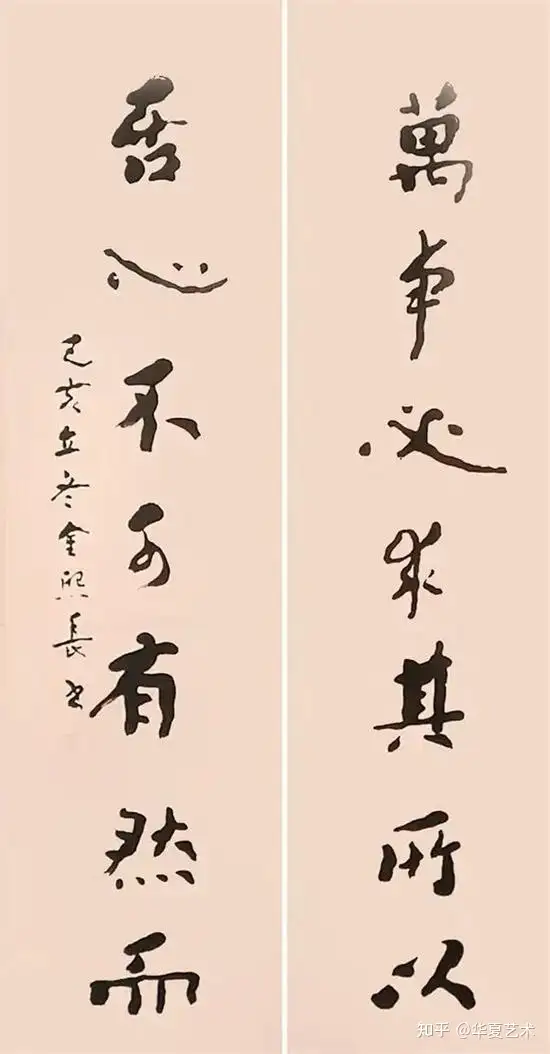 萬事必求其所以
吾心不可有然而
己亥立冬金熙長书
知乎 @华夏艺术